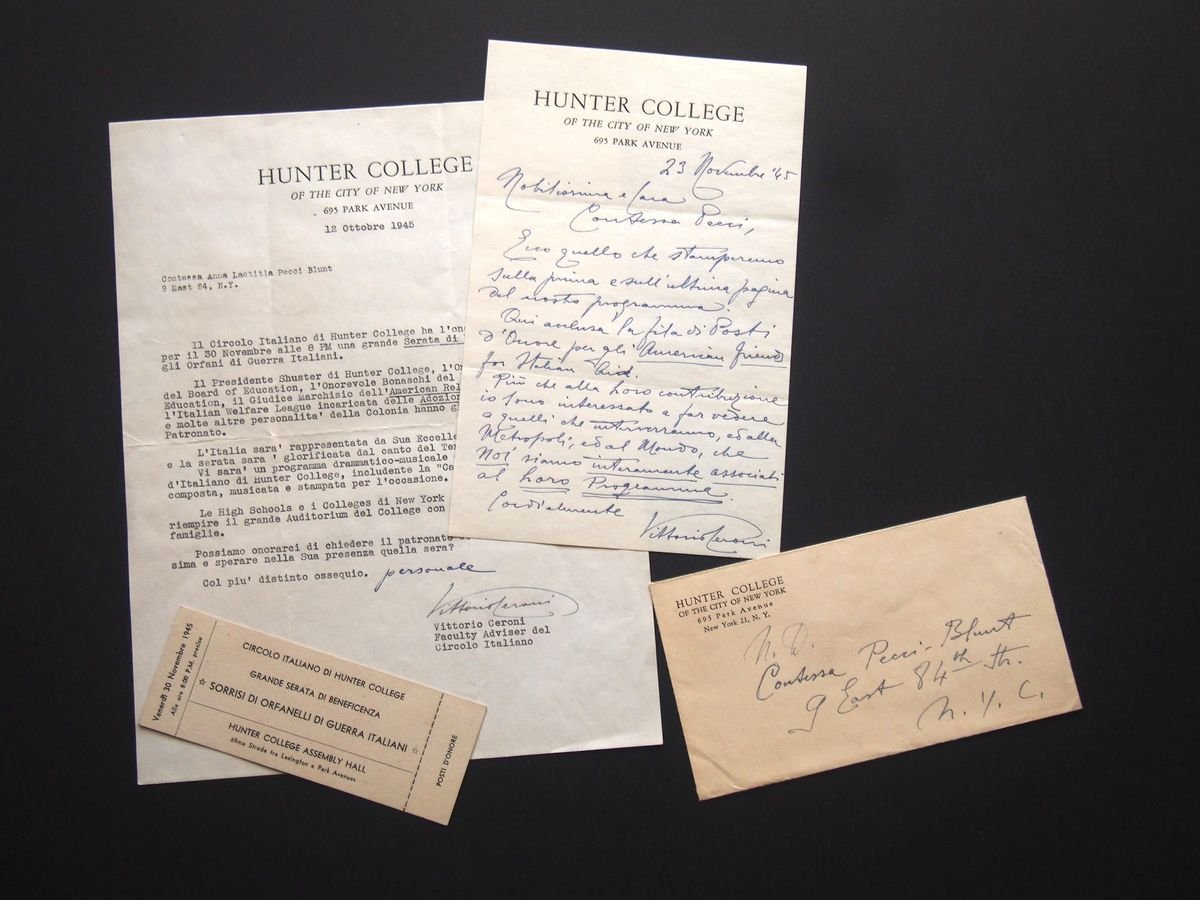 HUNTER COLLEGE
OF THE CITY OF NEW YORK
695 PARK AVENUE
12 Ottobre 1945
Contessa Anna Laetitia Pecci Blunt
9 East 84, N.Y.
Il Circolo Italiano di Hunter College ha l'on
per il 30 Novembre alle 8 PM una grande Serata di
gli Orfani di Guerra Italiani.
Il Presidente Shuster di Hunter College, l'O
del Board of Education, l'Onorevole Bonaschi del
Education, il Giudice Marchisio dell'American Rel
l'Italian Welfare League incaricata delle Adozion
e molte altre personalita' della Colonia hanno g
Patronato.
L'Italia sara' rappresentata da Sua Eccelle
e la serata sara ' glorificata dal canto del Te
Vi sara' un programma drammatico-musicale
d'Italiano di Hunter College, includente la "Ca
composta, musicata e stampata per l'occasione.
Le High Schools e i Colleges di New York
riempire il grande Auditorium del College con
famiglie.
Possiamo onorarci di chiedere il patronato
sima e sperare nella Sua presenza quella sera?
Col piu' distinto ossequio. personale
Vittorio Ceroni
Vittorio Ceroni
Faculty Adviser del
Circolo Italiano
HUNTER COLLEGE
OF THE CITY OF NEW YORK
695 PARK AVENUE
23 Novembre '45
Nobilissima e Cara
Contessa Pecci,
Ecco quello che stamperemo
sulla prima e sull'ultima pagina
del nostro programma.
Qui acclusa la fila di Posti
d'Onore per gli American Friends
for Italian Aid.
Più che alla loro contribuzione
io sono interessato a far vedere
a quelli che interverranno, ed alla
Metropoli, ed al Mondo, che
NOI siamo interamente associati
al Loro Programma.
Cordialmente
Vittorio Ceroni
Venerdì 30 Novembre 1945
Alle ore 8:00 P.M. precise
CIRCOLO ITALIANO DI HUNTER COLLEGE
GRANDE SERATA DI BENEFICENZA
☆ SORRISI DI ORFANELLI DI GUERRA ITALIANI ☆
HUNTER COLLEGE ASSEMBLY HALL
69ma Strada fra Lexington e Park Avenues
POSTI D'ONORE
HUNTER COLLEGE
OF THE CITY OF NEW YORK
695 Park Avenue
New York 21, N. Y.
N. D.
Contessa Pecci-Blunt
9 East 84th Str.
N.Y.C.